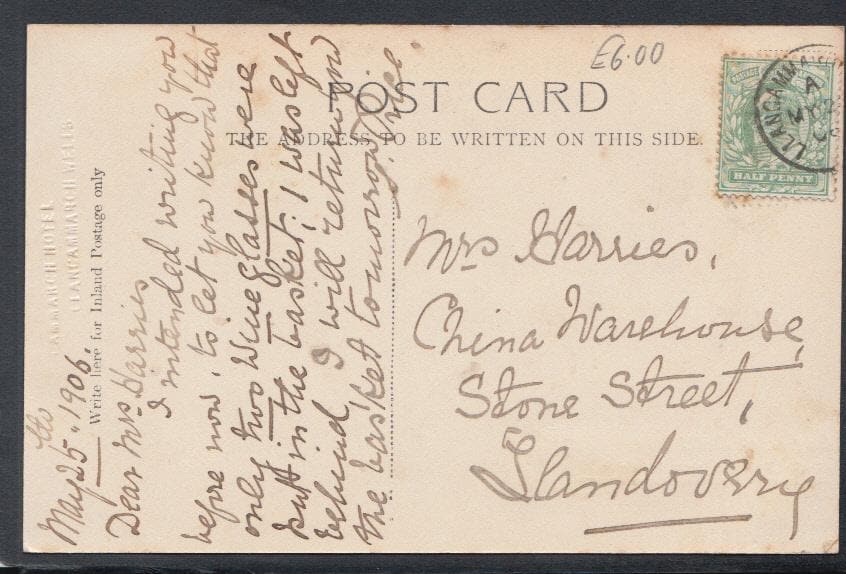 £6.00
POST CARD
THE ADDRESS TO BE WRITTEN ON THIS SIDE.
HALF PENNY
LLANGAMMARCH
A
MY
CAMMARCH HOTEL
LLANGAMMARCH WELLS
Write here for Inland Postage only
May 25, 1906.
Dear Mrs Harries
I intended writing you
before now, to let you know that
only two Wine glasses were
putt in the basket, 1 was left
behind, I will return you
the basket tomorrow,
Mrs Harries,
China Warehouse,
Stone Street,
Llandovery